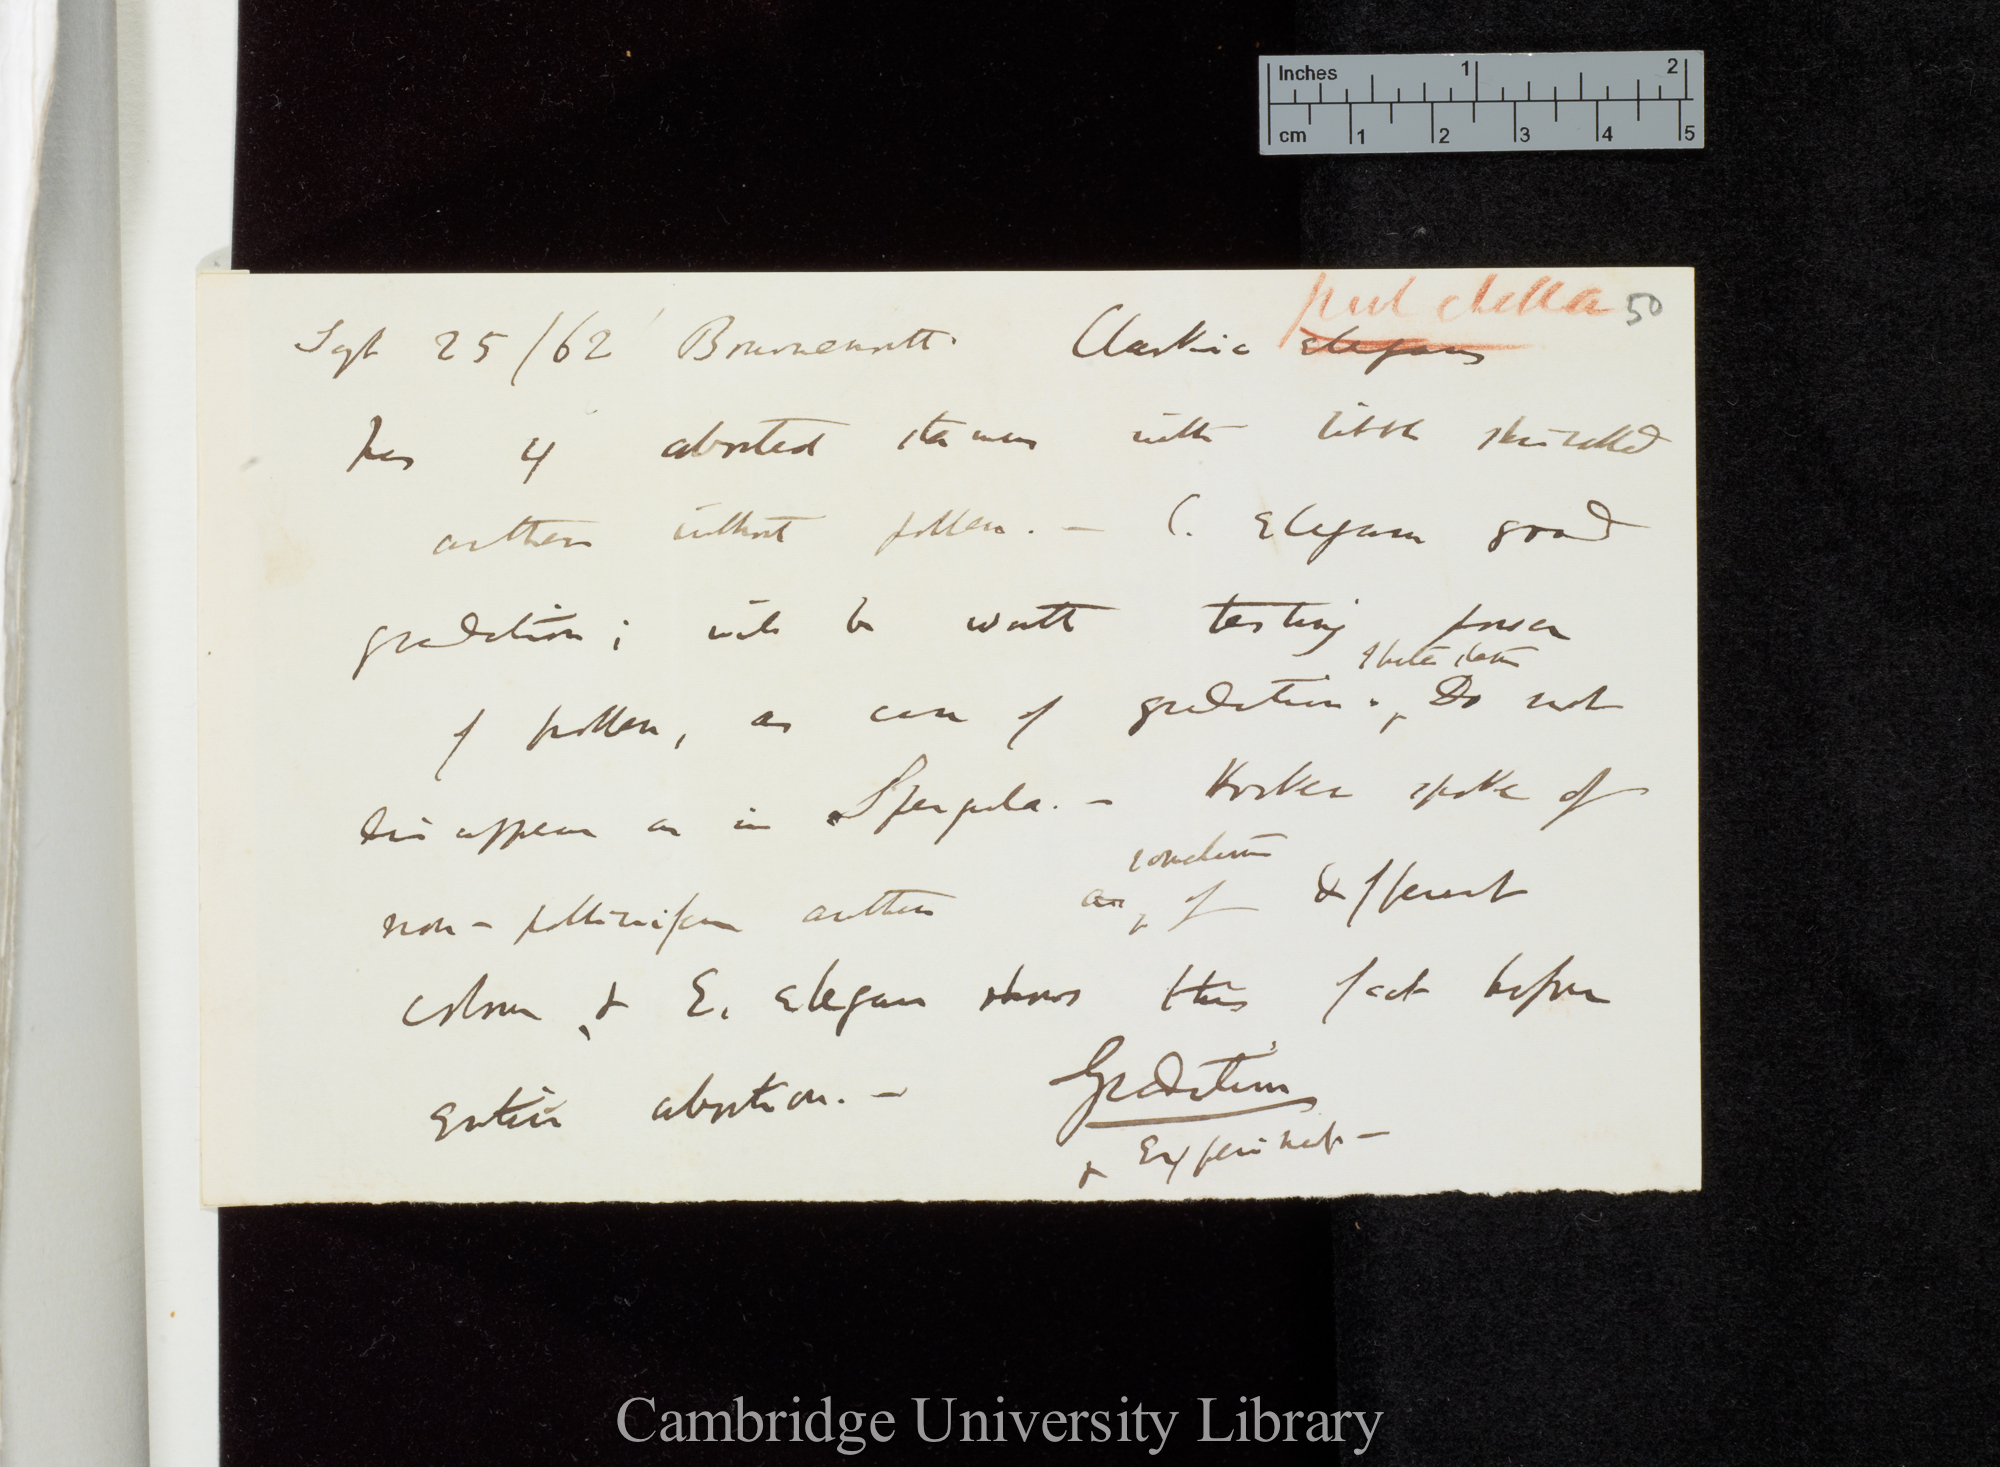 Inches 1 2
cm 1 2 3 4 5
pulchella 50
Sept 25/62 Bournemouth. Clarkia elegans
has 4 aborted stamens with little shrivelled
anthers without pollen. — C. elegans good
gradation; will be worth testing power
of pollen, as case of gradation. Do not
disappear as in Spergula. — Hooker spoke of
sometimes
non-polliniferous anthers as of different
colour & E. elegans shows this fact before
entire abortion. — Gradation
& Experiment —
Cambridge University Library